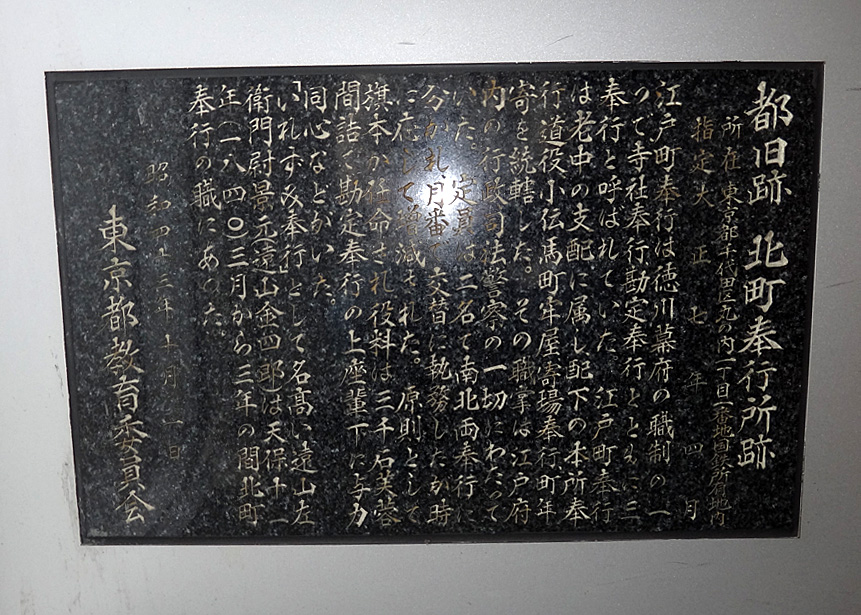 都旧跡 北町奉行所跡
所在 東京都千代田区丸の内一丁目一番地国鉄所属地内
指定 大正七年四月
江戸町奉行は徳川幕府の職制の一
つで寺社奉行勘定奉行とともに三
奉行と呼ばれていた。江戸町奉行
は老中の支配に属し配下の本所奉
行道役小伝馬町牢屋寄場奉行町年
寄を統轄した。その職掌は江戸府
内の行政司法警察の一切にわたって
いた。定員は二名で南北両奉行に
分かれ月番で交替に執務したが時
に応じて増減された。原則として
旗本が任命され役料は三千石芙蓉
間詰で勘定奉行の上座輩下に与力
同心などがいた。
「いれずみ奉行」として名高い遠山左
衛門尉景元(遠山金四郎)は天保十一
年(一八四〇)三月から三年の間北町
奉行の職にあった。
昭和四十三年十月一日
東京都教育委員会